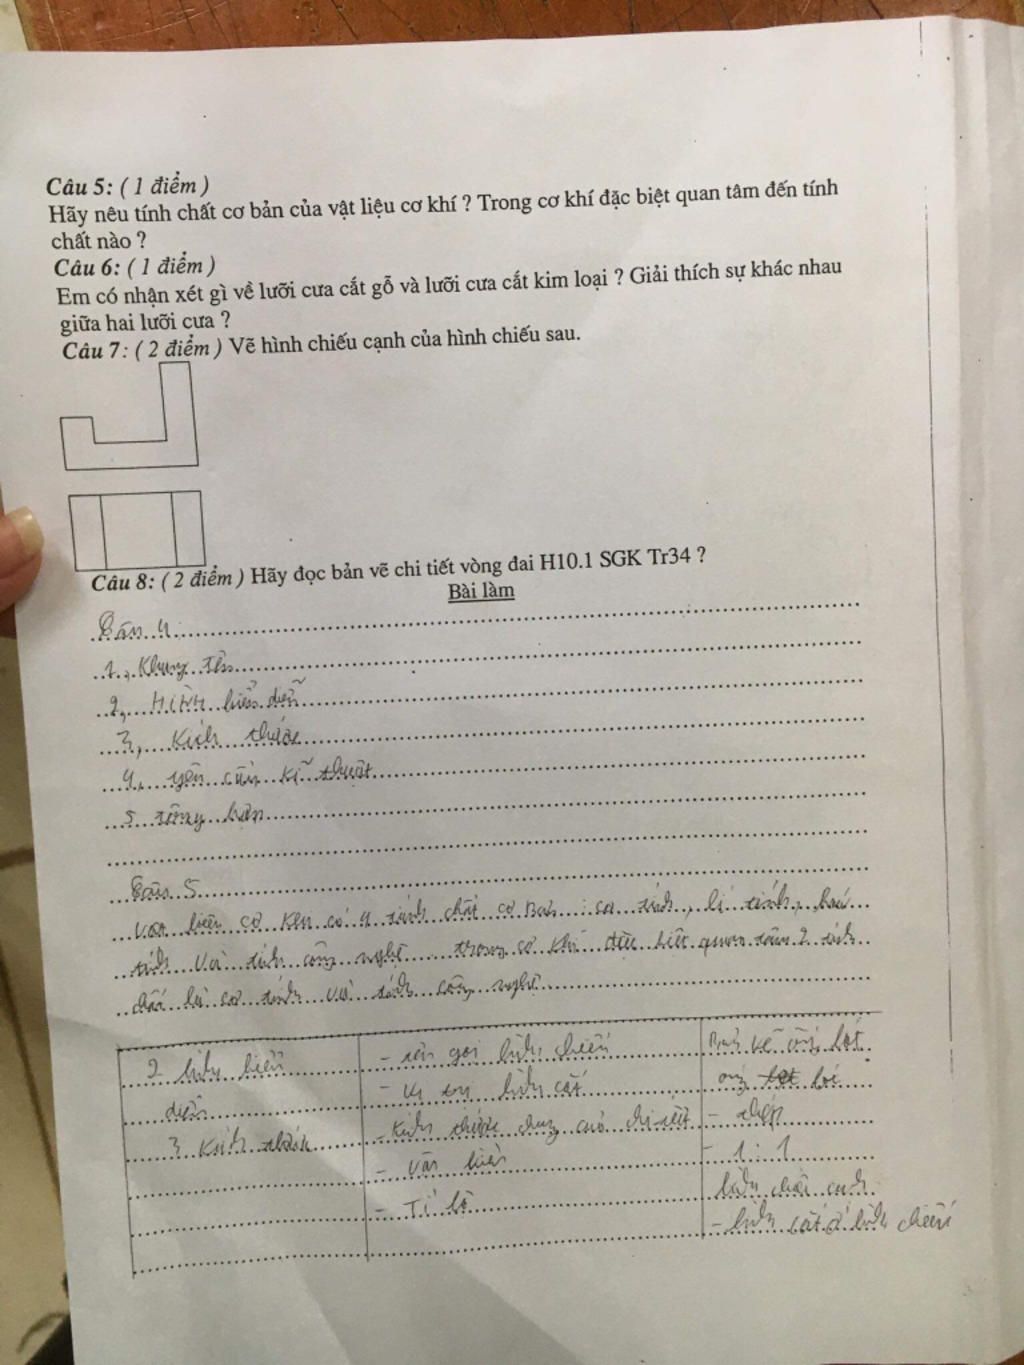 Câu 5: ( 1 điểm )
Hãy nêu tính chất cơ bản của vật liệu cơ khí ? Trong cơ khí đặc biệt quan tâm đến tính
chất nào ?
Câu 6: ( 1 điểm )
Em có nhận xét gì về lưỡi cưa cắt gỗ và lưỡi cưa cắt kim loại ? Giải thích sự khác nhau
giữa hai lưỡi cưa ?
Câu 7: ( 2 điểm ) Vẽ hình chiếu cạnh của hình chiếu sau.
Câu 8: ( 2 điểm ) Hãy đọc bản vẽ chi tiết vòng đai H10.1 SGK Tr34 ?
Bài làm
Câu 4
1, Khung tên
2, Hình biểu diễn
3, Kích thước
4, yêu cầu kĩ thuật
5 tổng hợp
Câu 5
cơ khí có 4 tính chất cơ bản : cơ tính, lí tính, hoá
tính và tính công nghệ trong cơ khí đặc biệt quan tâm 2 tính
chất là cơ tính và tính công nghệ
2 hình biểu - tên gọi hình chiếu
diễn - hình cắt
3 Kích thước - Kích thước chung của chi tiết - thép
- Vật liệu - 1:1
- Tỉ lệ
- hình cắt ở hình chiếu